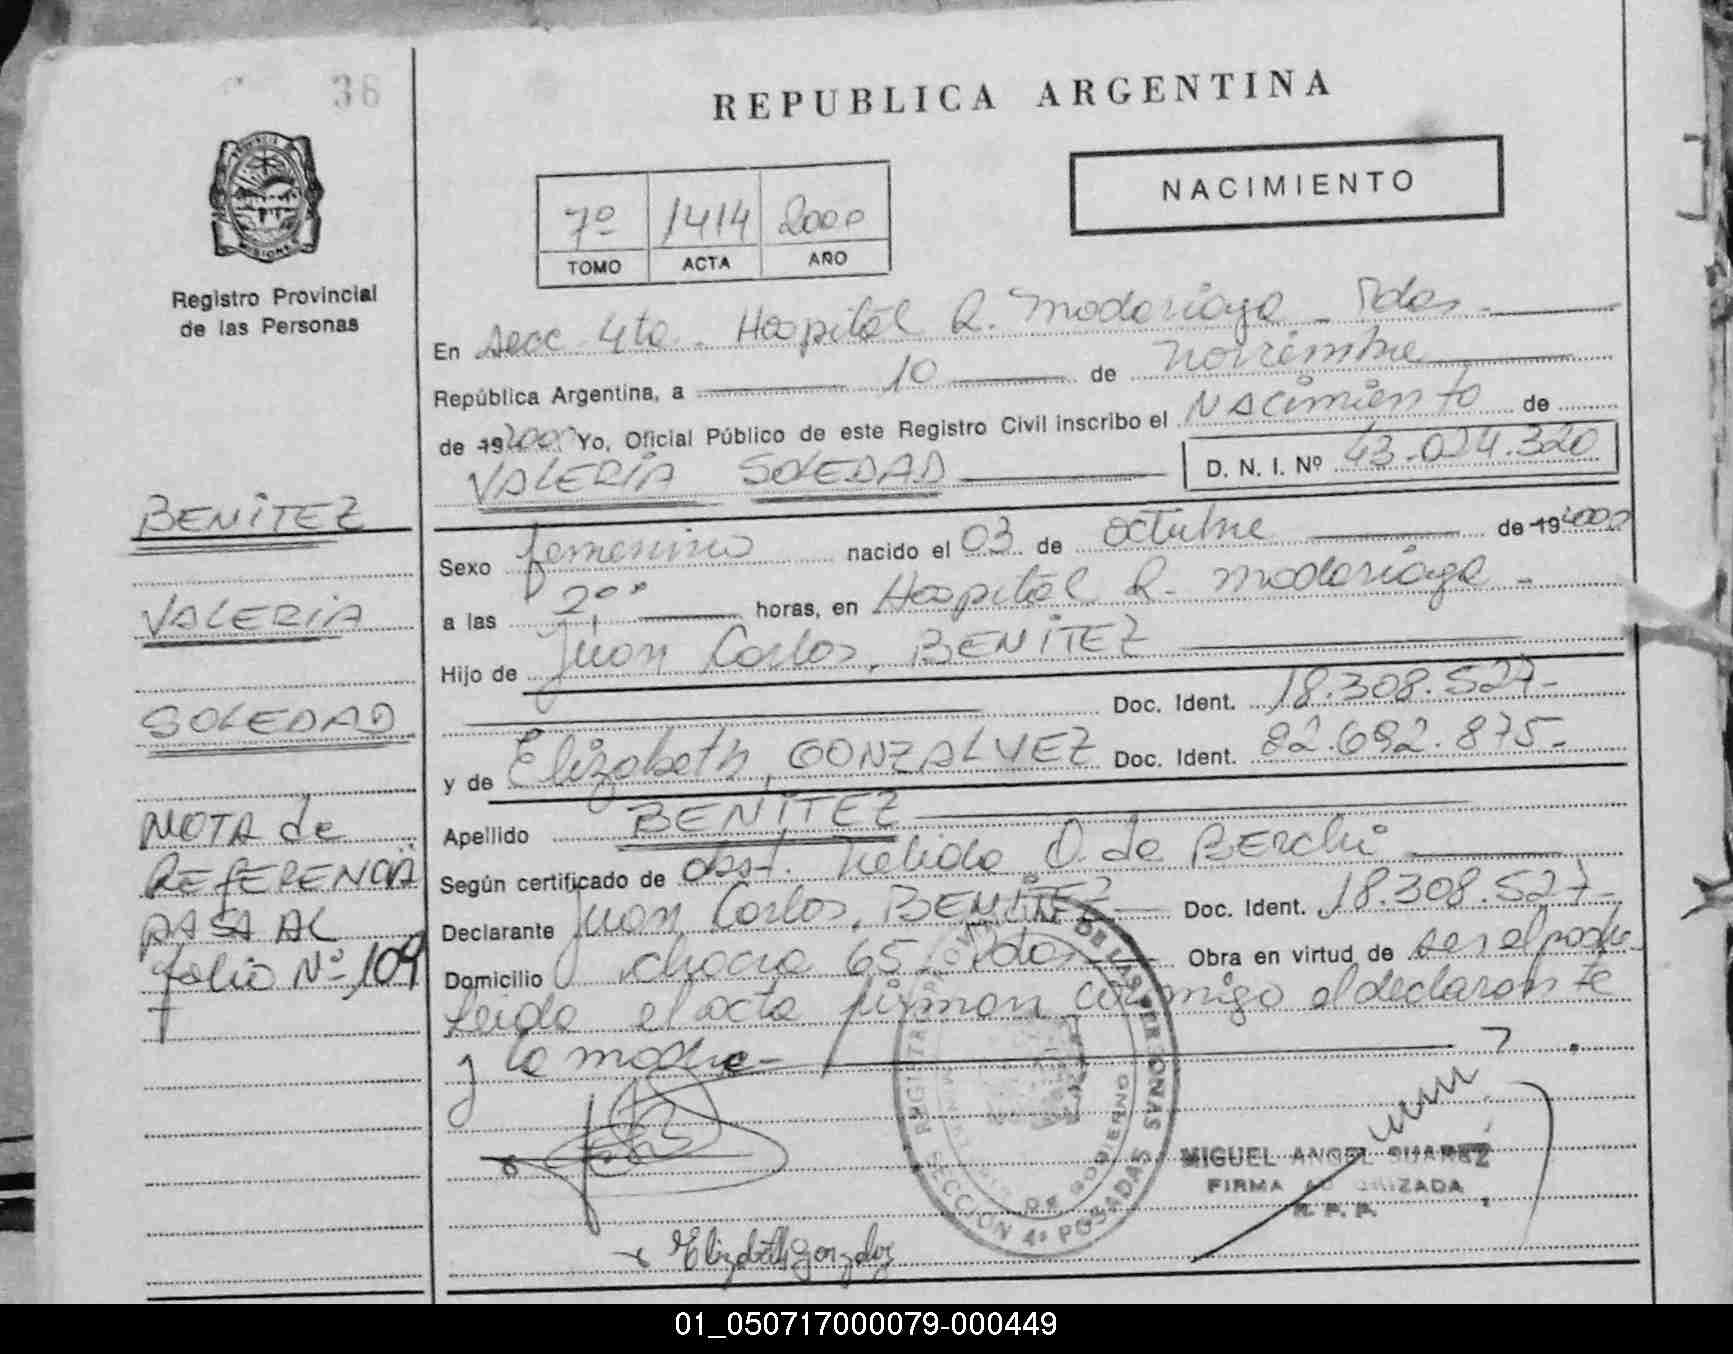 36
REPUBLICA ARGENTINA
NACIMIENTO
7º 1414 2000
TOMO ACTA AÑO
Registro Provincial
de las Personas
En Secc 4ta. Hospital R. Madariaga - Pdas -
República Argentina, a 10 de noviembre
de 19 2000 Yo, Oficial Público de este Registro Civil inscribo el NACimiento de
VALERIA SOLEDAD D. N. I. Nº 43.024.320
Sexo femenino nacido el 03 de octubre de 19 2000
a las 2,00 horas, en Hospital R. Madariaga -
Hijo de Juan Carlos, BENITEZ
Doc. Ident. 18.308.527-
y de Elizabeth, GONZALVEZ Doc. Ident. 92.692.875-
Apellido BENITEZ
Según certificado de obst. Nelida O. de BERchi
Declarante Juan Carlos, BENITEZ Doc. Ident. 18.308.527-
Domicilio chacra 65, Pdas Obra en virtud de ser el padre
Leida el acta firman conmigo el declarante
y la madre-
BENITEZ
VALERIA
SOLEDAD
NOTA de
REFERENCIA
PASA AL
folio Nº 109
REGISTRO PROVINCIAL DE LAS PERSONAS
MINISTERIO DE GOBIERNO
SECCION 4ª POSADAS
MIGUEL ANGEL SUAREZ
FIRMA AUTORIZADA
R. P. P.
x Elizabeth Gonzalvez
01_050717000079-000449